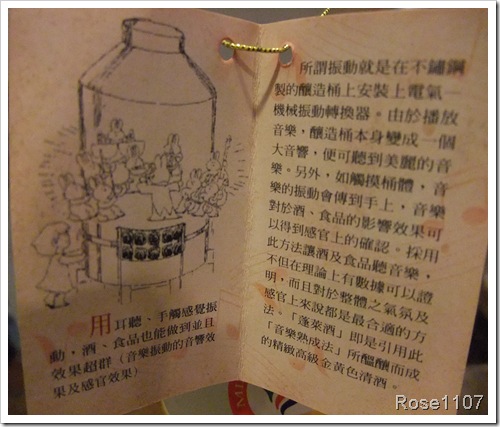 用耳聽、手觸感覺振
動，酒、食品也能做到並且
效果超群（音樂振動的音響效
果及感官效果）
所謂振動就是在不鏽鋼
製的釀造桶上安裝上電氣—
機械振動轉換器。由於播放
音樂，釀造桶本身變成一個
大音響，便可聽到美麗的音
樂。另外，如觸摸桶體，音
樂的振動會傳到手上，音樂
對於酒、食品的影響效果可
以得到感官上的確認。採用
此方法讓酒及食品聽音樂，
不但在理論上有數據可以證
明，而且對於整體之氣氛及
感官上來說都是最合適的方
法。「蓬萊酒」即是引用此
「音樂熟成法」所醞釀而成
的精緻高級金黃色清酒。
Rose1107